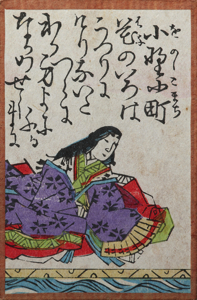 をのゝこまち
小野小町
花のいろは
うつりに
けりないた
つらに
わか身よに
ふる
なかめせしまに